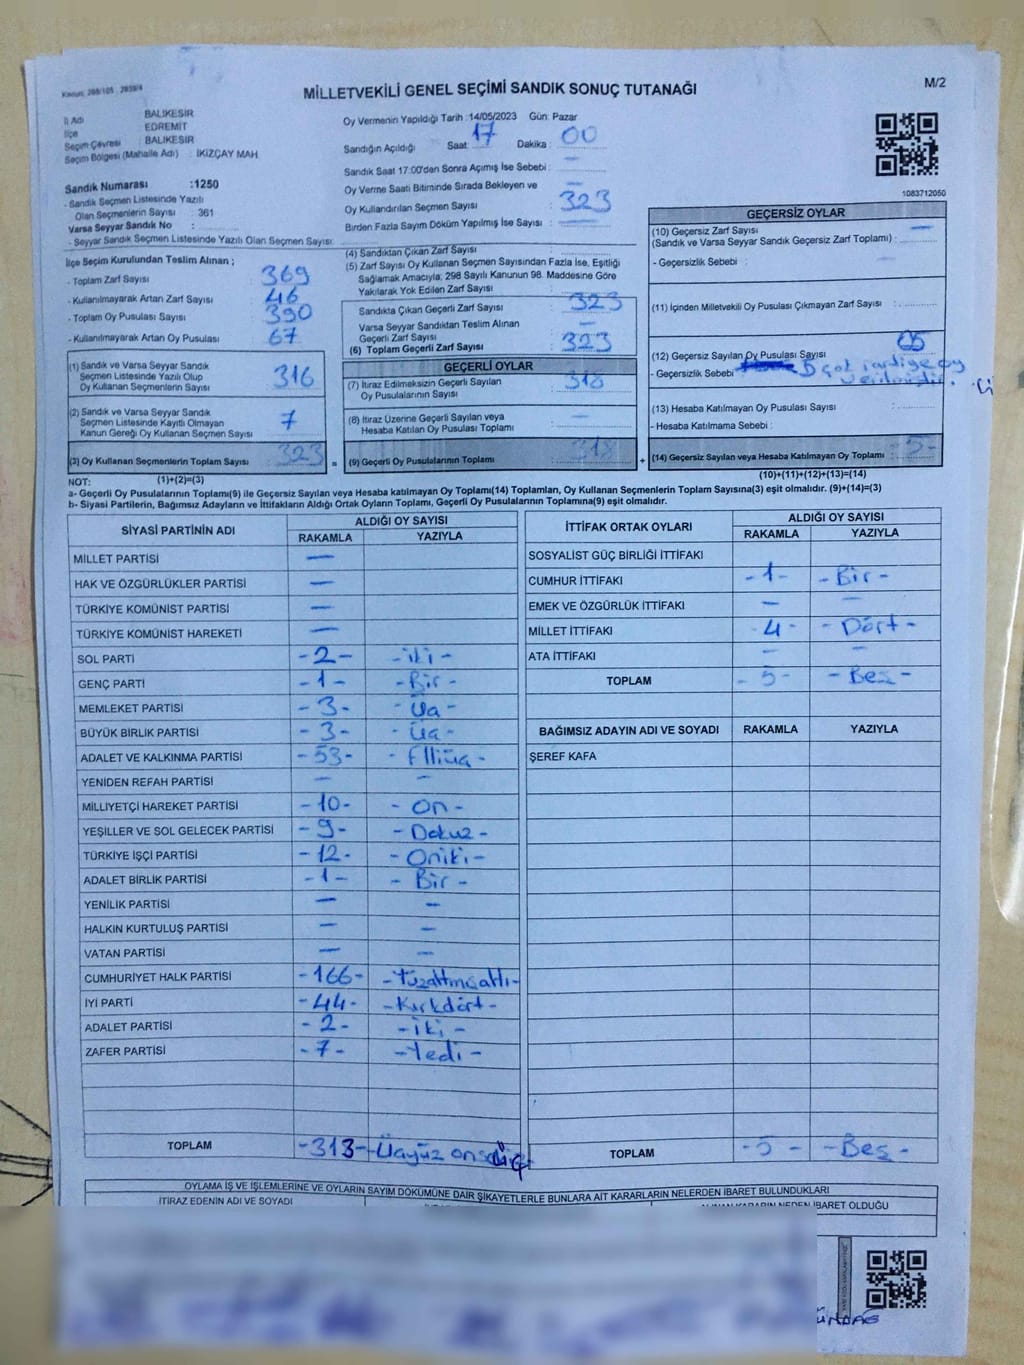 MİLLETVEKİLİ GENEL SEÇİMİ SANDIK SONUÇ TUTANAĞI
M/2
İl Adı BALIKESİR
İlçe EDREMİT
Seçim Çevresi BALIKESİR
Seçim Bölgesi (Mahalle Adı) : İKİZÇAY MAH
Sandık Numarası :1250
- Sandık Seçmen Listesinde Yazılı
Olan Seçmenlerin Sayısı : 361
Varsa Seyyar Sandık No :
- Seyyar Sandık Seçmen Listesinde Yazılı Olan Seçmen Sayısı:
Oy Vermenin Yapıldığı Tarih :14/05/2023 Gün: Pazar
Sandığın Açıldığı Saat: 17 Dakika : 00
Sandık Saat 17:00'dan Sonra Açımış İse Sebebi : —
Oy Verme Saati Bitiminde Sırada Bekleyen ve —
Oy Kullandırılan Seçmen Sayısı : 323
Birden Fazla Sayım Döküm Yapılmış İse Sayısı : —
1083712050
İlçe Seçim Kurulundan Teslim Alınan ;
- Toplam Zarf Sayısı : 369
- Kullanılmayarak Artan Zarf Sayısı : 46
- Toplam Oy Pusulası Sayısı : 390
- Kullanılmayarak Artan Oy Pusulası : 67
(1) Sandık ve Varsa Seyyar Sandık
Seçmen Listesinde Yazılı Olup
Oy Kullanan Seçmenlerin Sayısı 316
(2) Sandık ve Varsa Seyyar Sandık
Seçmen Listesinde Kayıtlı Olmayan
Kanun Gereği Oy Kullanan Seçmen Sayısı 7
(3) Oy Kullanan Seçmenlerin Toplam Sayısı 323
(1)+(2)=(3)
(4) Sandıktan Çıkan Zarf Sayısı :
(5) Zarf Sayısı Oy Kullanan Seçmen Sayısından Fazla İse, Eşitliği
Sağlamak Amacıyla; 298 Sayılı Kanunun 98. Maddesine Göre
Yakılarak Yok Edilen Zarf Sayısı :
Sandıkta Çıkan Geçerli Zarf Sayısı 323
Varsa Seyyar Sandıktan Teslim Alınan
Geçerli Zarf Sayısı —
(6) Toplam Geçerli Zarf Sayısı 323
GEÇERLİ OYLAR
(7) İtiraz Edilmeksizin Geçerli Sayılan
Oy Pusulalarının Sayısı 318
(8) İtiraz Üzerine Geçerli Sayılan veya
Hesaba Katılan Oy Pusulası Toplamı —
= (9) Geçerli Oy Pusulalarının Toplamı 318 +
GEÇERSİZ OYLAR
(10) Geçersiz Zarf Sayısı —
(Sandık ve Varsa Seyyar Sandık Geçersiz Zarf Toplamı) :
- Geçersizlik Sebebi : —
(11) İçinden Milletvekili Oy Pusulası Çıkmayan Zarf Sayısı :
(12) Geçersiz Sayılan Oy Pusulası Sayısı 05
- Geçersizlik Sebebi oy
(13) Hesaba Katılmayan Oy Pusulası Sayısı :
- Hesaba Katılmama Sebebi :
(14) Geçersiz Sayılan veya Hesaba Katılmayan Oy Toplamı : -5-
(10)+(11)+(12)+(13)=(14)
NOT:
a- Geçerli Oy Pusulalarının Toplamı(9) ile Geçersiz Sayılan veya Hesaba katılmayan Oy Toplamı(14) Toplamları, Oy Kullanan Seçmenlerin Toplam Sayısına(3) eşit olmalıdır. (9)+(14)=(3)
b- Siyasi Partilerin, Bağımsız Adayların ve İttifakların Aldığı Ortak Oyların Toplamı, Geçerli Oy Pusulalarının Toplamına(9) eşit olmalıdır.
SİYASİ PARTİNİN ADI ALDIĞI OY SAYISI
RAKAMLA YAZIYLA
MİLLET PARTİSİ —
HAK VE ÖZGÜRLÜKLER PARTİSİ —
TÜRKİYE KOMÜNİST PARTİSİ —
TÜRKİYE KOMÜNİST HAREKETİ —
SOL PARTİ -2- -iki-
GENÇ PARTİ -1- -Bir-
MEMLEKET PARTİSİ -3- -Üç-
BÜYÜK BİRLİK PARTİSİ -3- -Üç-
ADALET VE KALKINMA PARTİSİ -53- -Elliüç-
YENİDEN REFAH PARTİSİ — —
MİLLİYETÇİ HAREKET PARTİSİ -10- -On-
YEŞİLLER VE SOL GELECEK PARTİSİ -9- -Dokuz-
TÜRKİYE İŞÇİ PARTİSİ -12- -Oniki-
ADALET BİRLİK PARTİSİ -1- -Bir-
YENİLİK PARTİSİ — —
HALKIN KURTULUŞ PARTİSİ — —
VATAN PARTİSİ — —
CUMHURİYET HALK PARTİSİ -166- -Yüzaltmışaltı-
İYİ PARTİ -44- -Kırkdört-
ADALET PARTİSİ -2- -iki-
ZAFER PARTİSİ -7- -Yedi-
TOPLAM -313- -Üçyüz onüç-
İTTİFAK ORTAK OYLARI ALDIĞI OY SAYISI
RAKAMLA YAZIYLA
SOSYALİST GÜÇ BİRLİĞİ İTTİFAKI
CUMHUR İTTİFAKI -1- -Bir-
EMEK VE ÖZGÜRLÜK İTTİFAKI — —
MİLLET İTTİFAKI -4- -Dört-
ATA İTTİFAKI — —
TOPLAM -5- -Beş-
BAĞIMSIZ ADAYIN ADI VE SOYADI RAKAMLA YAZIYLA
ŞEREF KAFA
TOPLAM -5- -Beş-
OYLAMA İŞ VE İŞLEMLERİNE VE OYLARIN SAYIM DÖKÜMÜNE DAİR ŞİKAYETLERLE BUNLARA AİT KARARLARIN NELERDEN İBARET BULUNDUKLARI
İTİRAZ EDENİN ADI VE SOYADI
ALINAN KARARIN NEDEN İBARET OLDUĞU